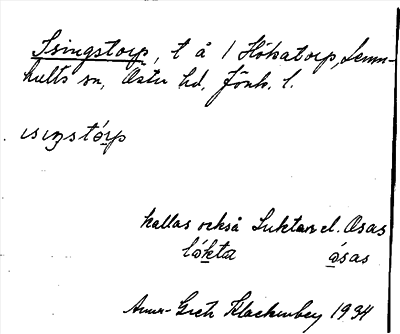 Isingstorp, t å / Hökatorp, Lemn-
hults sn, Östra hd, Jönk. l.
ısıŋstórp
kallas också Luktan el. Åsas
lókta ósas
Anna-Greta Klackenberg 1934